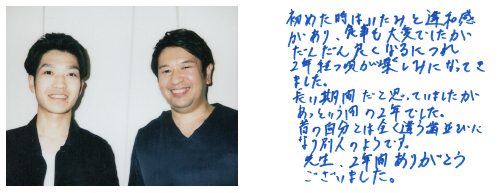 初めた時はいたみと違和感
があり、食事も大変でしたが
だんだん良くなるにつれ
2年経つ頃が楽しみになってき
ました。
長い期間だと思っていましたが
あっという間の2年でした。
昔の自分とは全く違う歯並びに
なり別人のようです。
先生、2年間ありがとう
ございました。